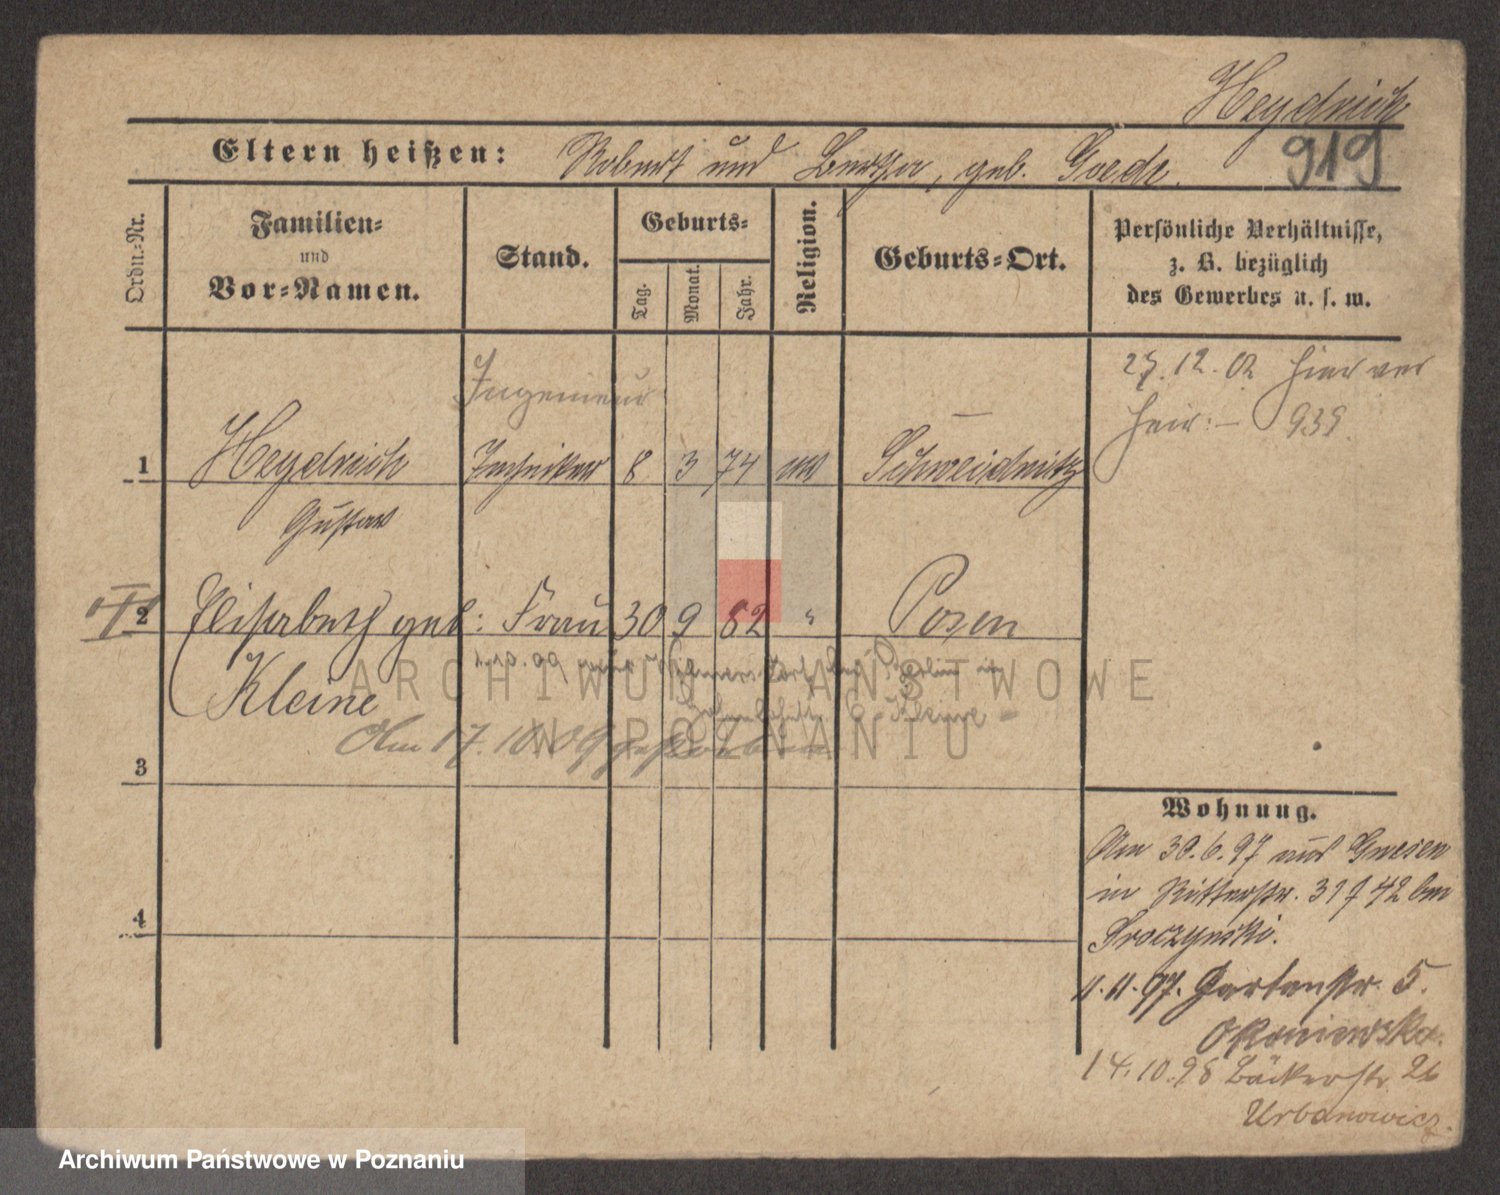 Heydrich
919
Eltern heißen: Robert und Bertha, geb. Goede.
Ordn.-Nr.
Familien-
und
Vor-Namen.
Stand.
Geburts-
Tag.
Monat.
Jahr.
Religion.
Geburts-Ort.
Persönliche Verhältnisse,
z. B. bezüglich
des Gewerbes u. s. w.
27.12.02 hier ver
heir:- 939
Ingenieur
1 Heydrich Techniker 8 3 74 Schweidnitz
Gustav
2 Elisabeth geb: Frau 30 9 82 " Posen
Kleine
1.10.99
Am 17. 10
3
4
Wohnung.
Am 30.6.97 aus Gnesen
in Ritterstr. 37 / 42 bei
Troczynski.
11.11.97. Gartenstr. 5.
Okoniewska.
14.10.98 Bäckerstr. 26
Urbanowicz.
ARCHIWUM PAŃSTWOWE
W POZNANIU
Archiwum Państwowe w Poznaniu